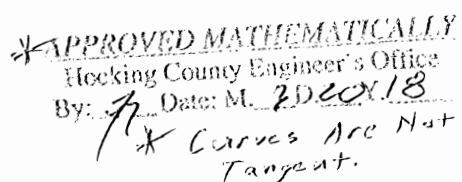 *APPROVED MATHEMATICALLY
Hocking County Engineer's Office
By: Date: M. 2 D 20 Y 18
* Curves Are Not
Tangent.